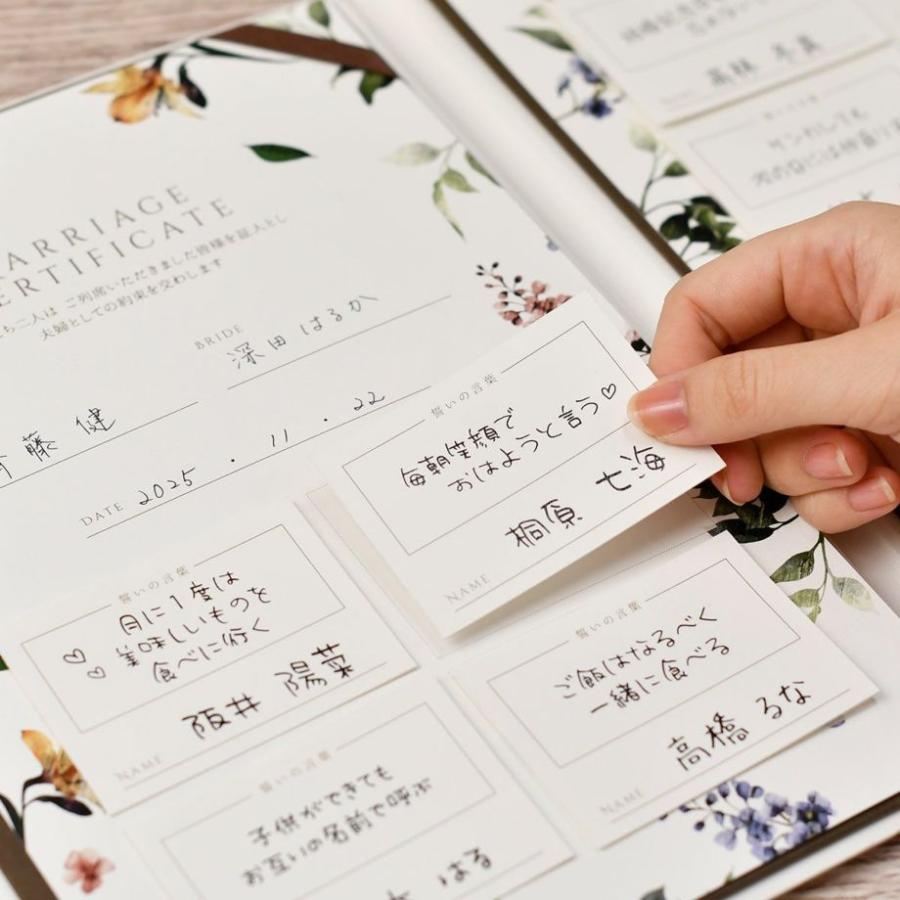 MARRIAGE
CERTIFICATE
ご列席いただきました皆様を証人とし
夫婦としての約束を交わします
BRIDE
深田 はるか
藤 健
DATE 2025 . 11 . 22
誓いの言葉
毎朝笑顔で
おはようと言う♡
桐原 七海
NAME
誓いの言葉
月に1度は
美味しいものを
食べに行く
阪井 陽菜
NAME
誓いの言葉
ご飯はなるべく
一緒に食べる
高橋 るな
NAME
誓いの言葉
子供ができても
お互いの名前で呼ぶ
はる
ケンカしても